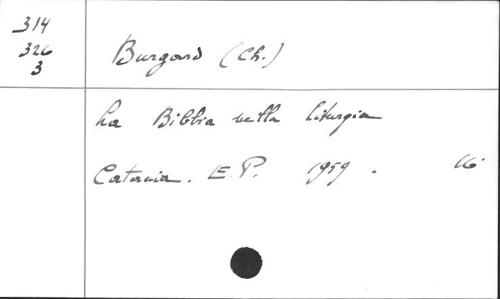 314
326
3
Burgard (Ch.)
La Bibbia nella liturgia
Catania. E.P. 1959. 16°